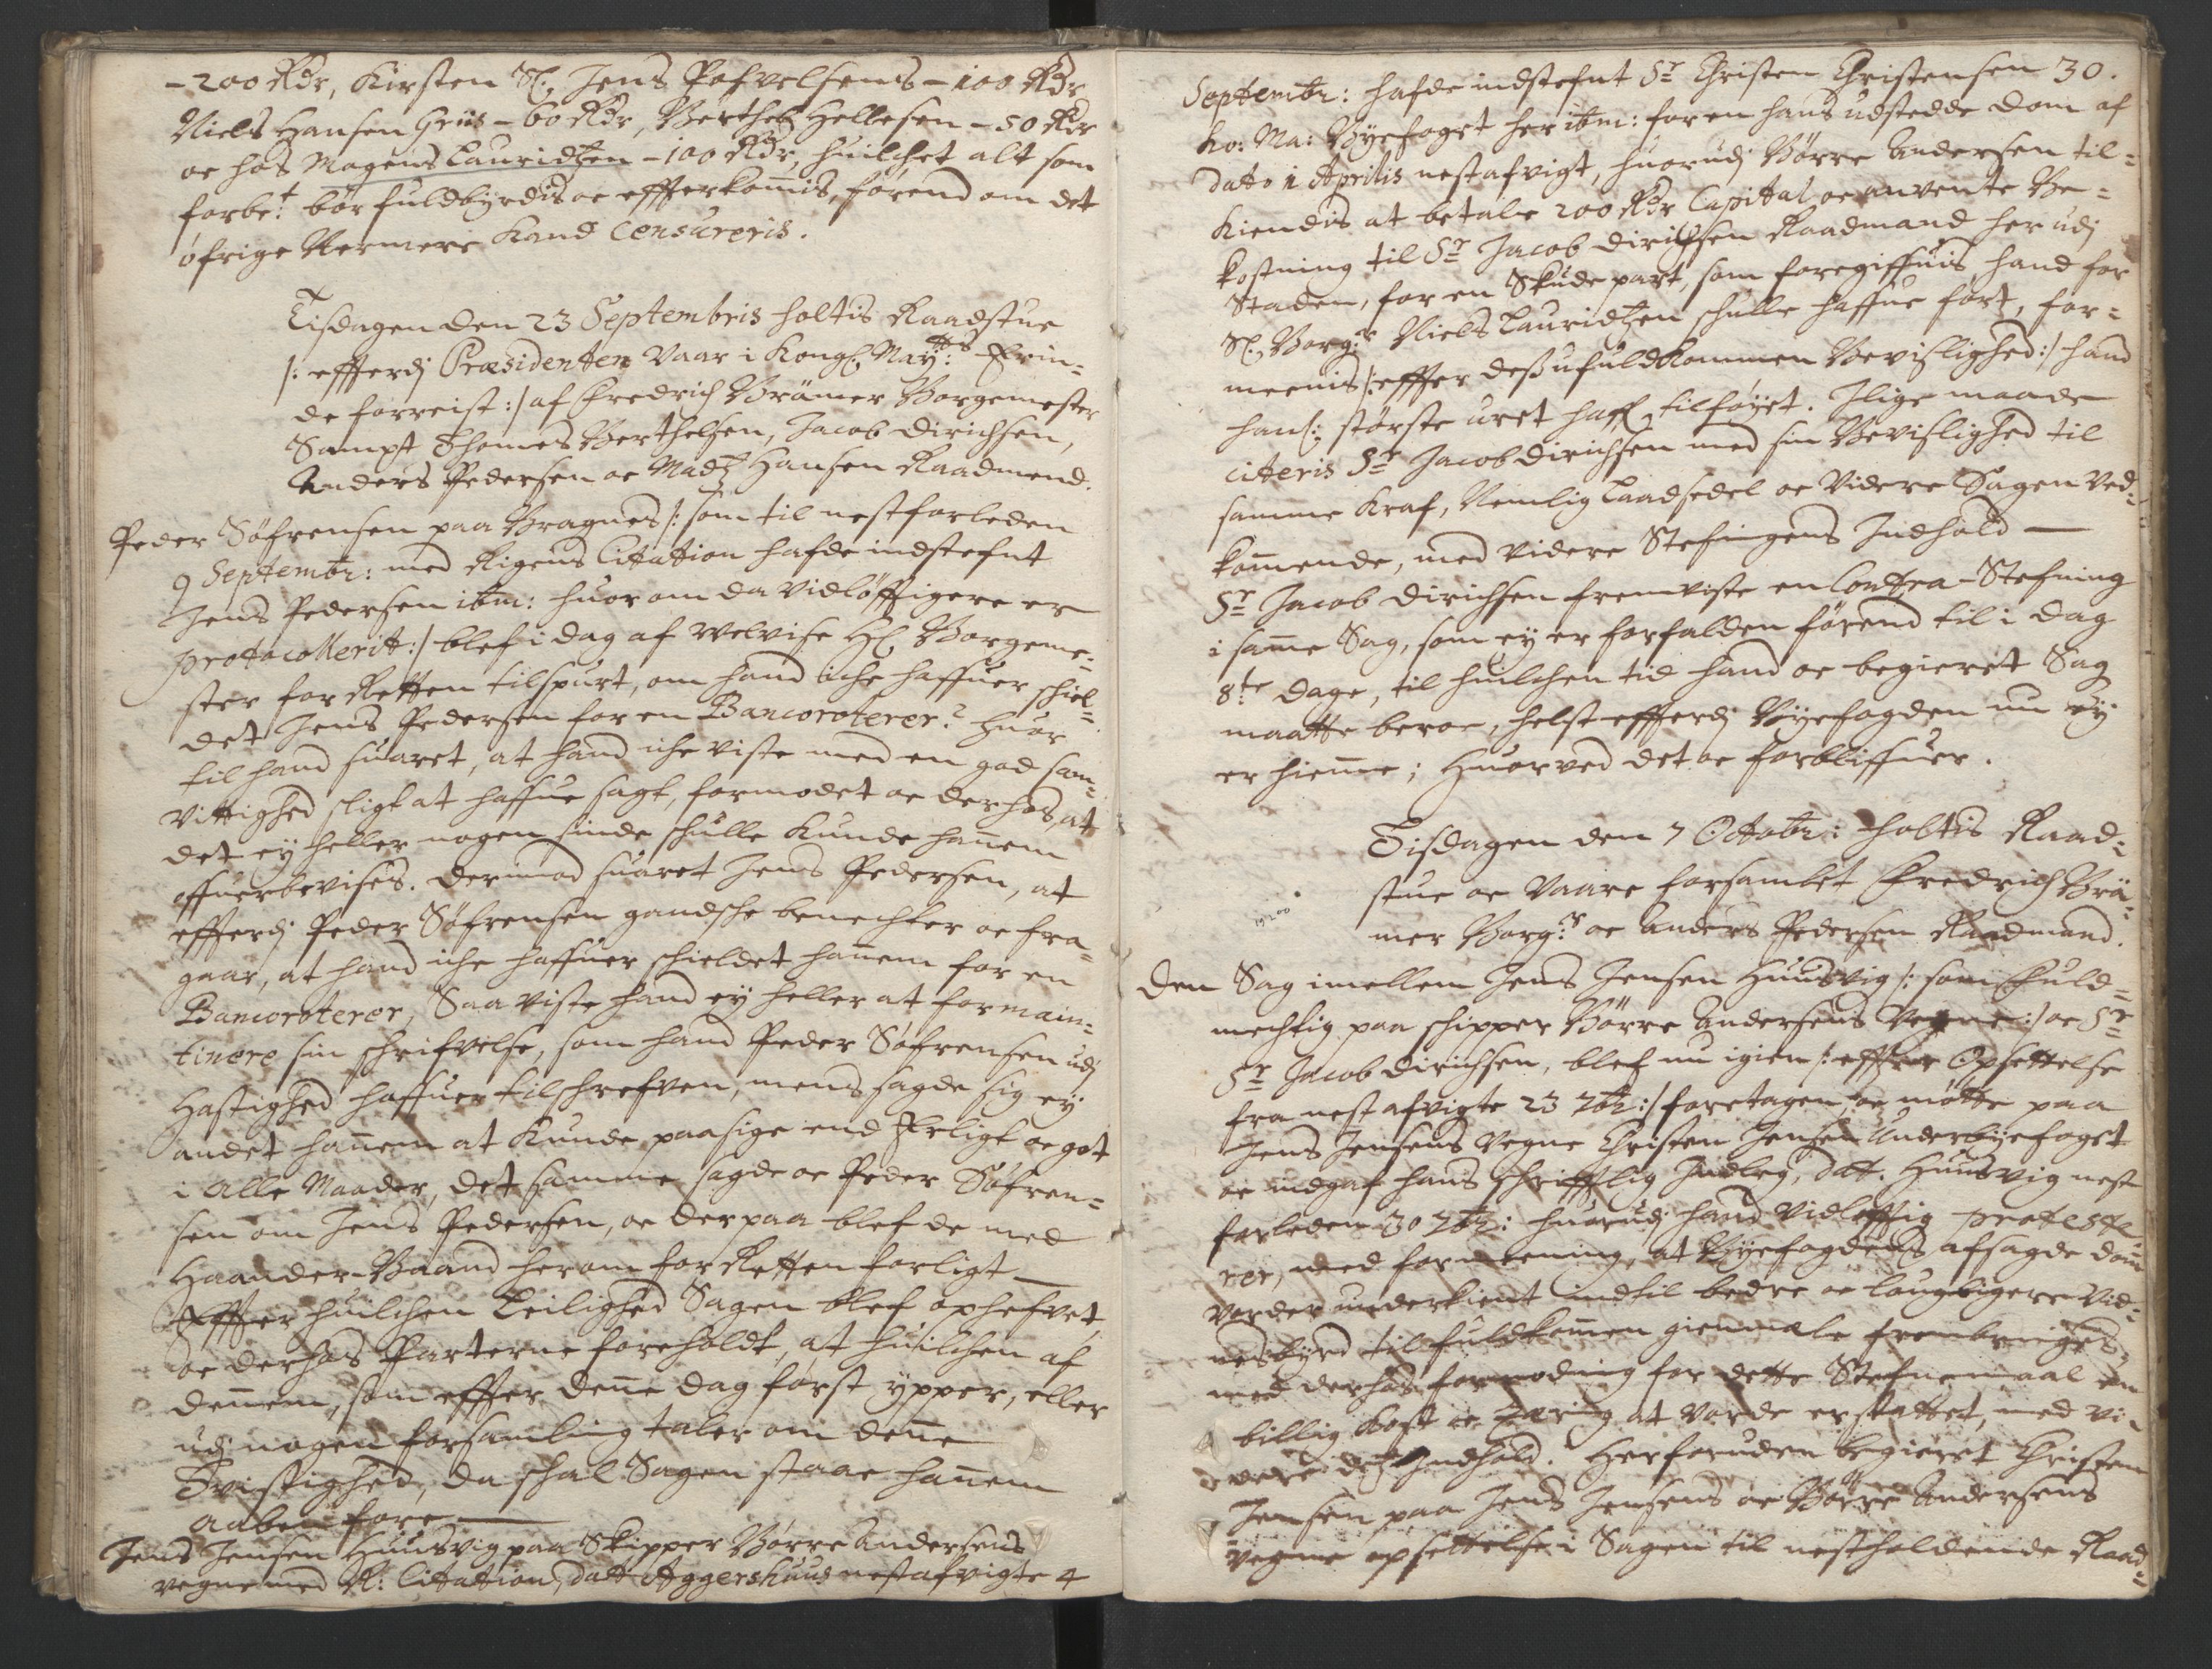 - 200 Rdr, Kirsten Sl: Jens Pofvelsens - 100 Rdr
Niels Hansen Griis - 60 Rdr, Berthel Hellesen - 50 Rdr
oc hos Mogens Lauridtzen - 100 Rdr, huilchet alt som
forbe:t bør fuldbyrdis oc effterkomis, førend om det
øfrige Nermere Kand Censureris.
Tisdagen den 23 Septembris holtis Raadstue
/: effterdj Præsidenten vaar i Kongl: May:tts Erin-
de forreist :/ af Fredrich Brämer Borgemester
Sampt Thomes Berthelsen, Jacob Dirichsen,
Anders Pedersen oc Madtz Hansen Raadmend.
Peder Søfrensen paa Bragnes /: som til nestforleden
9 Septembr: med Rigens Citation hafde indstefnt
Jens Pedersen ibm: huorom da vidløfftigere er
protocollerit :/ blef i dag af Welvise Hl: Borgeme-
ster for Retten tilspurt, om hand iche haffuer schiel-
det Jens Pedersen for en Bancoroterer? Huor
til hand suaret, at hand iche viste med en god sam-
vittighed sligt at haffue sagt, formodet oc derhos, at
det ey heller nogen sinde schulle kunde hanem
offuerbevises. Derimod suaret Jens Pedersen, at
effterdj Peder Søfrensen gandsche benechter oc fra-
gaar, at hand iche haffuer schieldet hanem for en
Bancoroterer, Saa viste hand ey heller at formain-
tinere sin schrifvelse, som hand Peder Søfrensen udj
Hastighed haffuer tilschrefven, mens sagde sig ey
andet hanem at kunde paasige end Erligt oc got
i alle Maader, det samme sagde oc Peder Søfren-
sen om Jens Pedersen, oc derpaa blef de med
Haander-Baand herom for Retten forligt
Effter huilchen Leilighed Sagen blef ophefvet,
oc derhos Parterne foreholdt, at huilchen af
denem, som effter dene dag først ypper, eller
udj nogen forsamling taler om dene
Tvistighed, da schal Sagen staae hanem
aaben fore
Jens Jensen Huusvig paa Skipper Børre Andersens
vegne med R: Citation, datt Aggershuus nestafvigte 4
Septembr: hafde indstefnt Sr Christen Christensen 30.
Ko: Ma: Byefoget her ibm: for en hans udstedde dom af
dato 1 Aprilis nestafvigt, huorudj Børre Andersen til-
kiendis at betale 200 Rdr Capital oc anvente Be-
kostning til Sr Jacob Dirichsen Raadmand her udj
Staden, for en Skude part, som foregiffuis hand for
Sl: Borg:r Niels Lauridtzen schulle haffue fört, for-
meenis /: effter dess ufuldkommen Bevislighed :/ hand
hans: største uret haff: tilføyet. Jlige maade
citeris Sr Jacob Dirichsen med sin Bevislighed til
samme Kraf, Nemlig Laadsedel oc videre Sagen ved-
komende, med videre Stefningens Jndhold
Sr Jacob Dirichsen fremviste en Contra-Stefning
i same Sag, som ey er forfalden førend til i dag
8te dage, til huilchen tid hand oc begieret Sag
maatte beroe, helst effterdj Byefogden nu ey
er hieme; Huorved det oc forbliffuer.
Tisdagen den 7 Octobr: holtis Raad-
stue oc vaare forsamblet Fredrich Brä-
mer Borg:r oc Anders Pedersen Raadmand.
Den Sag imellem Jens Jensen Huusvig /: som fuld-
mechtig paa schipper Börre Andersens Vegne :/ oc Sr
Sr Jacob Dirichsen, blef nu igien /: effter Opsettelse
fra nest afvigte 23 7br :/ foretagen, oc møtte paa
Jens Jensens Vegne Christen Jensen Underbyefoget
oc indgaf hans schrifftlig Jndleg, dat. Huusvig nest
forleden 30 7br: huorudj hand vidløftig proteste-
rer, med formeening, at Byefogdens afsagde dom
vorder underkient indtil bedre oc lougligere vid-
nesbyrd til fuldkomen giemæle frembringes,
med derhos formoding for dette Stefnemaal en
billig kost oc Tæring at vorde erstattet, med vi-
dere dess Jndhold. Herforuden begieret Christen
Jensen paa Jens Jensens oc Børre Andersens
vegne opsettelse i Sagen til nestholdende Raad-